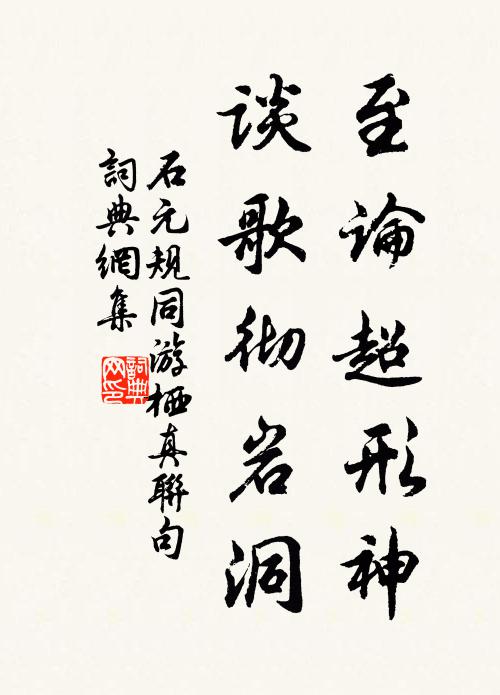 至論超形神
談歌彻岩洞
石元規同游栖真聯句
詞典網集
詞典
网印